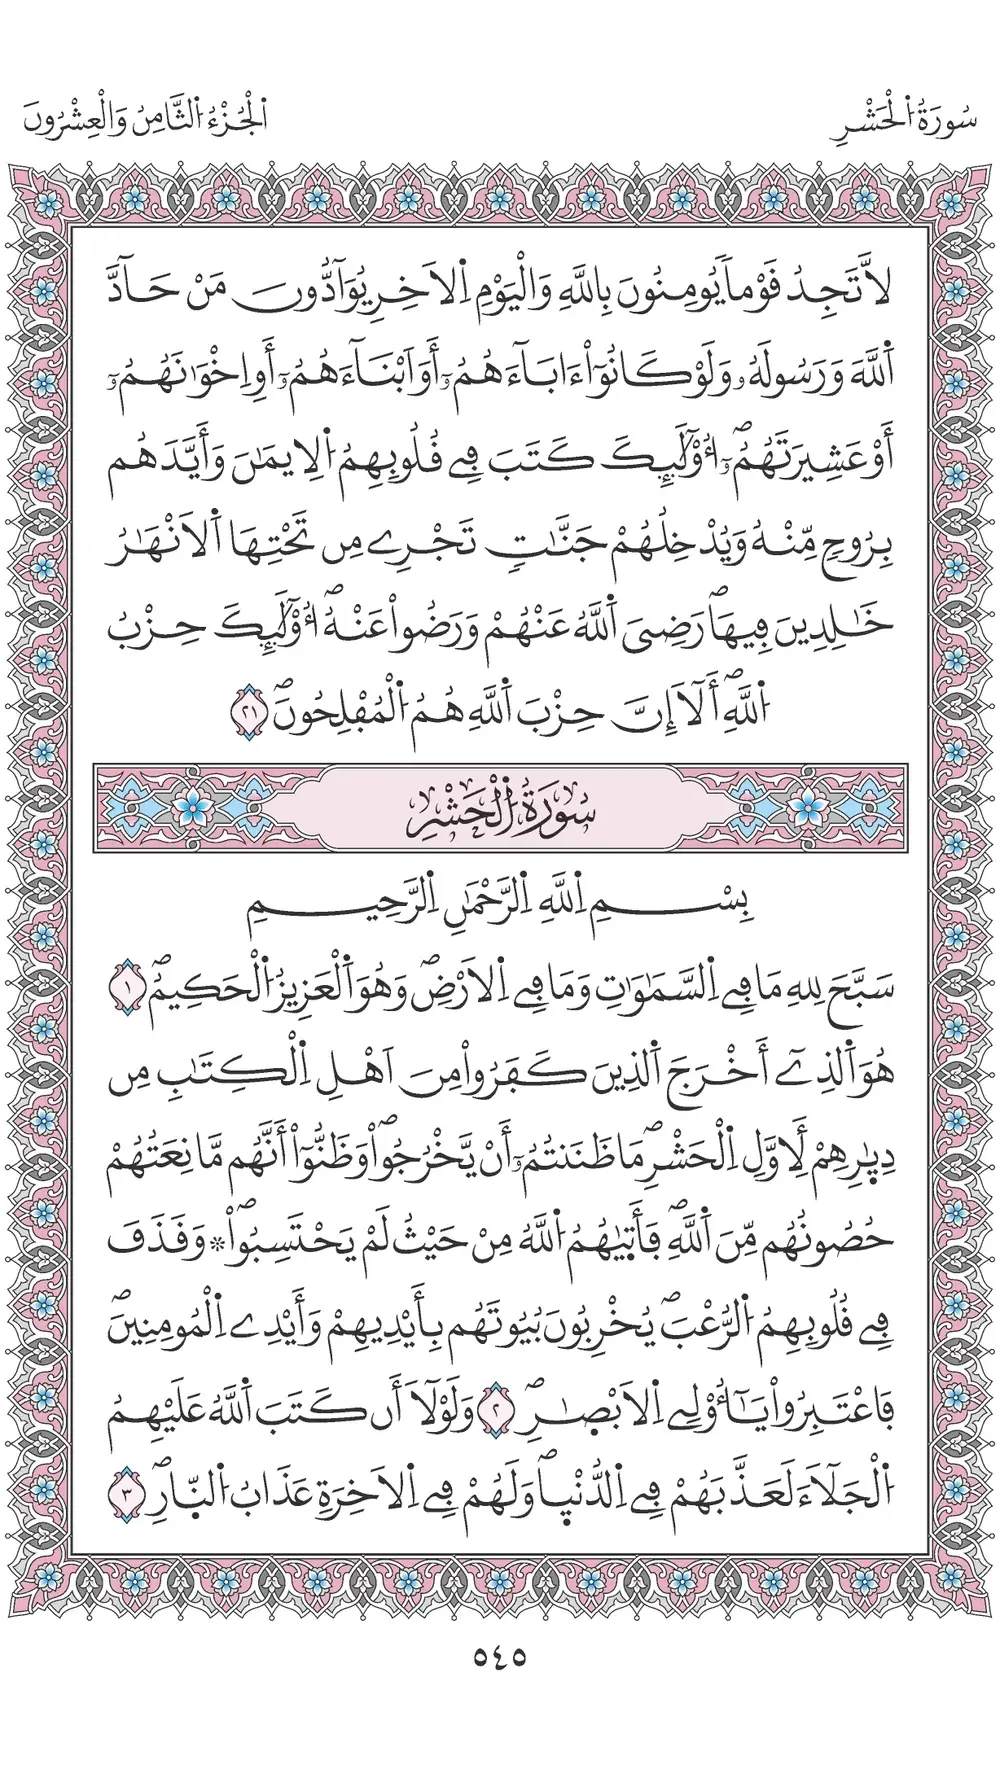 سُورَةُ اُ۬لْحَشْرِ
اَ۬لْجُزْءُ اُ۬لثَّامِنُ وَالْعِشْرُونَ
لَّا تَجِدُ قَوْماٗ يُومِنُونَ بِاللَّهِ وَالْيَوْمِ اِ۬لَاخِرِ يُوَآدُّونَ مَنْ حَآدَّ
اَ۬للَّهَ وَرَسُولَهُۥ وَلَوْ كَانُوٓاْ ءَابَآءَهُمُۥٓ أَوَ اَبْنَآءَهُمُۥٓ أَوِ اِخْوَٰنَهُمُۥٓ
أَوْ عَشِيرَتَهُمُۥٓۖ أُوْلَٰٓئِكَ كَتَبَ فِے قُلُوبِهِمُ اُ۬لِايمَٰنَ وَأَيَّدَهُم
بِرُوحٖ مِّنْهُ وَيُدْخِلُهُمْ جَنَّٰتٖ تَجْرِے مِن تَحْتِهَا اَ۬لَانْهَٰرُ
خَٰلِدِينَ فِيهَاۖ رَضِيَ اَ۬للَّهُ عَنْهُمْ وَرَضُواْ عَنْهُۖ أُوْلَٰٓئِكَ حِزْبُ
اُ۬للَّهِۖ أَلَآ إِنَّ حِزْبَ اَ۬للَّهِ هُمُ اُ۬لْمُفْلِحُونَۖ ٢١
سُورَةُ اُ۬لْحَشْرِ
بِسْمِ اِ۬للَّهِ اِ۬لرَّحْمَٰنِ اِ۬لرَّحِيمِ
سَبَّحَ لِلهِ مَا فِے اِ۬لسَّمَٰوَٰتِ وَمَا فِے اِ۬لَارْضِۖ وَهُوَ اَ۬لْعَزِيزُ اُ۬لْحَكِيمُۖ ١
هُوَ اَ۬لذِےٓ أَخْرَجَ اَ۬لذِينَ كَفَرُواْ مِنَ اَهْلِ اِ۬لْكِتَٰبِ مِن
دِيٰ۪رِهِمْ لِأَوَّلِ اِ۬لْحَشْرِۖ مَا ظَنَنتُمُۥٓ أَنْ يَّخْرُجُواْۖ وَظَنُّوٓاْ أَنَّهُم مَّانِعَتُهُمْ
حُصُونُهُم مِّنَ اَ۬للَّهِۖ فَأَت۪يٰهُمُ اُ۬للَّهُ مِنْ حَيْثُ لَمْ يَحْتَسِبُواْۖ * وَقَذَفَ
فِے قُلُوبِهِمُ اُ۬لرُّعْبَۖ يُخْرِبُونَ بُيُوتَهُم بِأَيْدِيهِمْ وَأَيْدِے اِ۬لْمُومِنِينَۖ
فَاعْتَبِرُواْ يَٰٓأُوْلِے اِ۬لَابْصٰ۪رِۖ ٢ وَلَوْلَآ أَن كَتَبَ اَ۬للَّهُ عَلَيْهِمُ
اُ۬لْجَلَآءَ لَعَذَّبَهُمْ فِے اِ۬لدُّنْي۪اۖ وَلَهُمْ فِے اِ۬لَاخِرَةِ عَذَابُ اُ۬لنّ۪ارِۖ ٣
٥٤٥